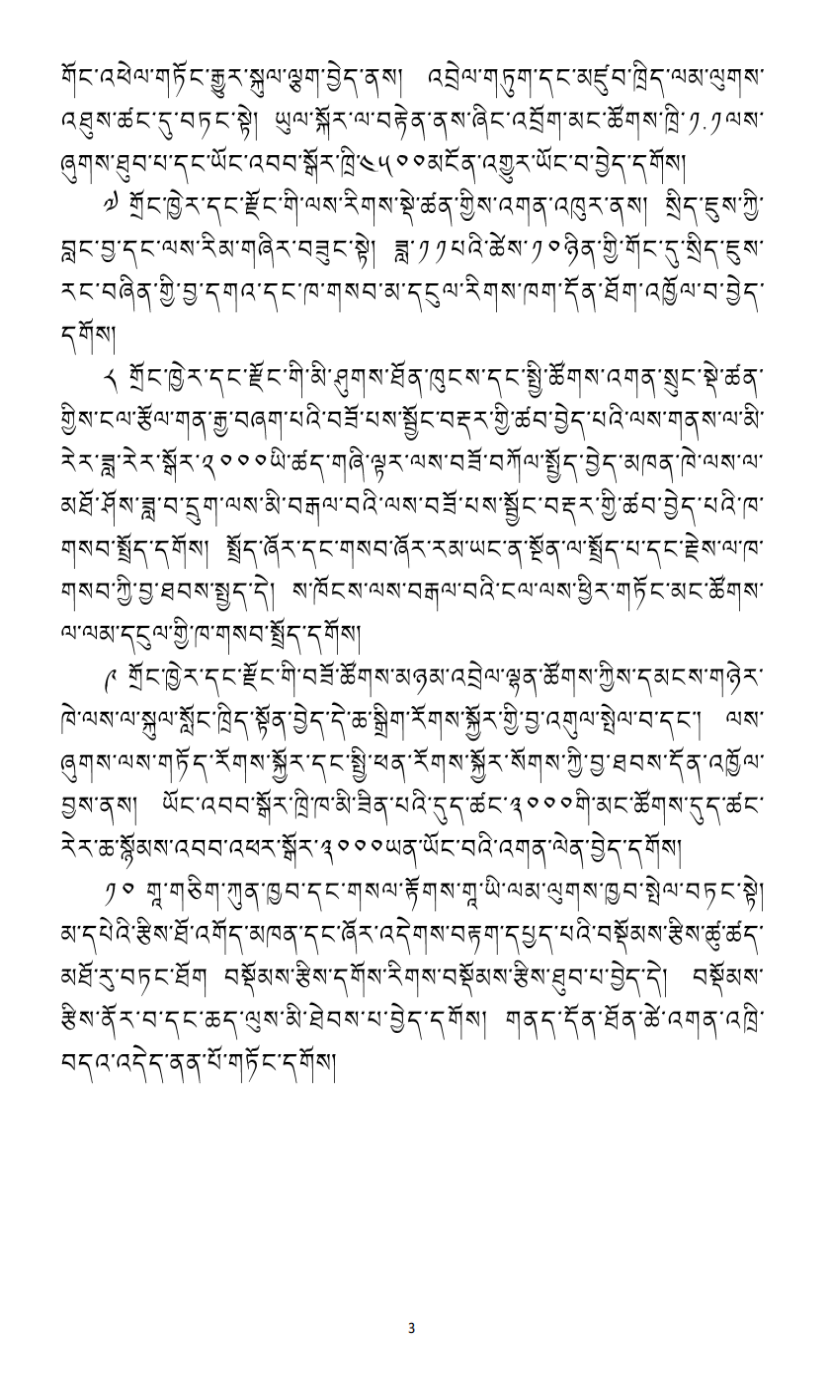 གོང་འཕེལ་གཏོང་རྒྱུར་སྐུལ་ལྕག་བྱེད་ནས། འབྲེལ་གཏུག་དང་མཛུབ་ཁྲིད་ལམ་ལུགས་
འཐུས་ཚང་དུ་བཏང་སྟེ། ཡུལ་སྐོར་ལ་བརྟེན་ནས་ཞིང་འབྲོག་མང་ཚོགས་ཁྲི་༡.༡ལས་
ཞུགས་ཐུབ་པ་དང་ཡོང་འབབ་སྒོར་ཁྲི་༤༥༠༠མངོན་འགྱུར་ཡོང་བ་བྱེད་དགོས།
༧ གྲོང་ཁྱེར་དང་རྫོང་གི་ལས་རིགས་སྡེ་ཚན་གྱིས་འགན་འཁུར་ནས། སྲིད་ཇུས་ཀྱི་
བླང་བྱ་དང་ལས་རིམ་གཞིར་བཟུང་སྟེ། ཟླ་༡༡པའི་ཚེས་༡༠ཉིན་གྱི་གོང་དུ་སྲིད་ཇུས་
རང་བཞིན་གྱི་བྱ་དགའ་དང་ཁ་གསབ་མ་དངུལ་རིགས་ཁག་དོན་ཐོག་འཁྱོལ་བ་བྱེད་
དགོས།
༨ གྲོང་ཁྱེར་དང་རྫོང་གི་མི་ཤུགས་ཐོན་ཁུངས་དང་སྤྱི་ཚོགས་འགན་སྲུང་སྡེ་ཚན་
གྱིས་ངལ་རྩོལ་གན་རྒྱ་བཞག་པའི་བཟོ་པས་སྦྱོང་བརྡར་གྱི་ཚབ་བྱེད་པའི་ལས་གནས་ལ་མི་
རེར་ཟླ་རེར་སྒོར་༢༠༠༠ཡི་ཚད་གཞི་ལྟར་ལས་བཟོ་བཀོལ་སྤྱོད་བྱེད་མཁན་ཁེ་ལས་ལ་
མཐོ་ཤོས་ཟླ་བ་དྲུག་ལས་མི་བརྒལ་བའི་ལས་བཟོ་པས་སྦྱོང་བརྡར་གྱི་ཚབ་བྱེད་པའི་ཁ་
གསབ་སྤྲོད་དགོས། སྤྲོད་ཞོར་དང་གསབ་ཞོར་རམ་ཡང་ན་སྔོན་ལ་སྤྲོད་པ་དང་རྗེས་ལ་ཁ་
གསབ་ཀྱི་བྱ་ཐབས་སྤྱད་དེ། ས་ཁོངས་ལས་བརྒལ་བའི་ངལ་ལས་ཕྱིར་གཏོང་མང་ཚོགས་
ལ་ལམ་དངུལ་གྱི་ཁ་གསབ་སྤྲོད་དགོས།
༩ གྲོང་ཁྱེར་དང་རྫོང་གི་བཟོ་ཚོགས་མཉམ་འབྲེལ་ལྷན་ཚོགས་ཀྱིས་དམངས་གཉེར་
ཁེ་ལས་ལ་སྐུལ་སློང་ཁྲིད་སྟོན་བྱེད་དེ་ཆ་སྒྲིག་རོགས་སྐྱོར་གྱི་བྱ་འགུལ་སྤེལ་བ་དང་། ལས་
ཞུགས་ལས་གཏོད་རོགས་སྐྱོར་དང་སྤྱི་ཕན་རོགས་སྐྱོར་སོགས་ཀྱི་བྱ་ཐབས་དོན་འཁྱོལ་
བྱས་ནས། ཡོང་འབབ་སྒོར་ཁྲི་ཁ་མི་ཟིན་པའི་དུད་ཚང་༣༠༠༠གི་མང་ཚོགས་དུད་ཚང་
རེར་ཆ་སྙོམས་འབབ་འཕར་སྒོར་༣༠༠༠ཡན་ཡོང་བའི་འགན་ལེན་བྱེད་དགོས།
༡༠ གྲྭ་གཅིག་ཀུན་ཁྱབ་དང་གསལ་རྟོགས་གྲྭ་ཡི་ལམ་ལུགས་ཁྱབ་སྤེལ་བཏང་སྟེ།
མ་དཔེའི་རྩིས་ཐོ་འགོད་མཁན་དང་ཞོར་འདེགས་བརྟག་དཔྱད་པའི་བསྡོམས་རྩིས་ཚུ་ཚད་
མཐོ་རུ་བཏང་ཐོག བསྡོམས་རྩིས་དགོས་རིགས་བསྡོམས་རྩིས་ཐུབ་པ་བྱེད་དེ། བསྡོམས་
རྩིས་ནོར་བ་དང་ཆད་ལུས་མི་ཐེབས་པ་བྱེད་དགོས། གནད་དོན་ཐོན་ཚེ་འགན་འཁྲི་
བདའ་འདེད་ནན་པོ་གཏོང་དགོས།
3